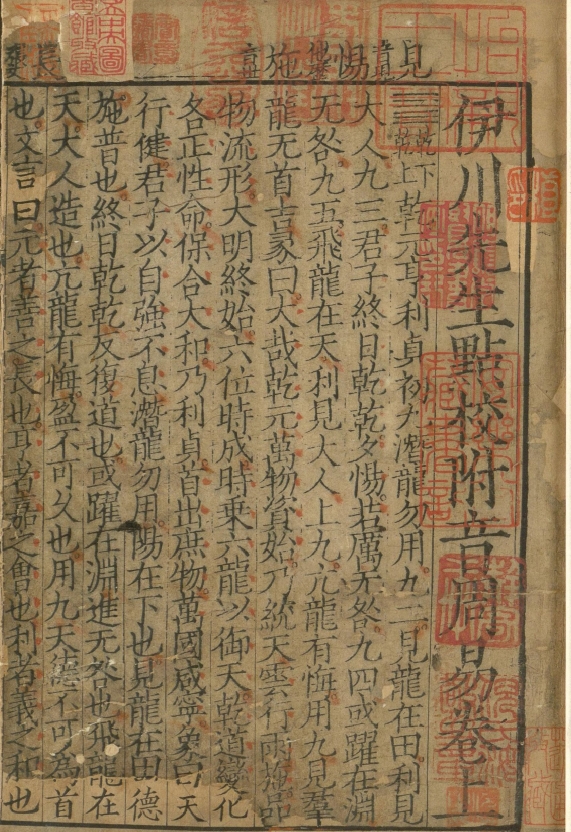 伊川先生點校附音周易卷上
乾下乾上乾元亨利貞初九潛龍勿用九二見龍在田利見
大人九三君子終日乾乾夕惕若厲无咎九四或躍在淵
无咎九五飛龍在天利見大人上九亢龍有悔用九見羣
龍无首吉彖曰大哉乾元萬物資始乃統天雲行雨施品
物流形大明終始六位時成時乗六龍以御天乾道變化
各正性命保合大和乃利貞首出庶物萬國咸寧象曰天
行健君子以自強不息潛龍勿用陽在下也見龍在田德
施普也終日乾乾反復道也或躍在淵進无咎也飛龍在
天大人造也亢龍有悔盈不可久也用九天德不可為首
也文言曰元者善之長也亨者嘉之會也利者義之和也
見
惕
施
長